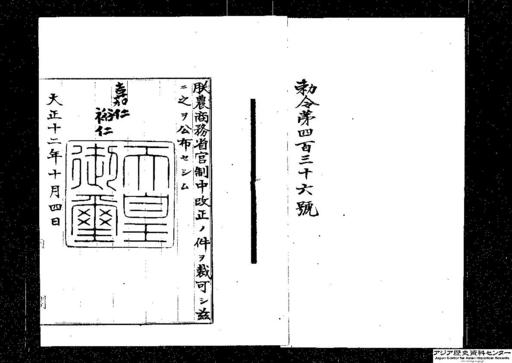 勅令第四百三十六號
朕農商務省官制中改正ノ件ヲ裁可シ茲
ニ之ヲ公布セシム
嘉仁
裕仁
天皇
御璽
大正十二年十月四日
アジア歴史資料センター
Japan Center for Asian Historical Records